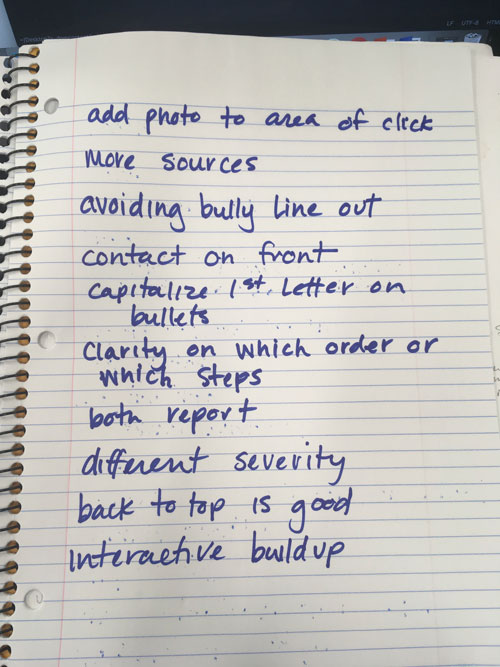 LF UTF-8 HTM
add photo to area of click
More sources
avoiding bully line out
contact on front
capitalize 1st letter on
bullets
Clarity on which order or
which steps
both report
different severity
back to top is good
Interactive buildup